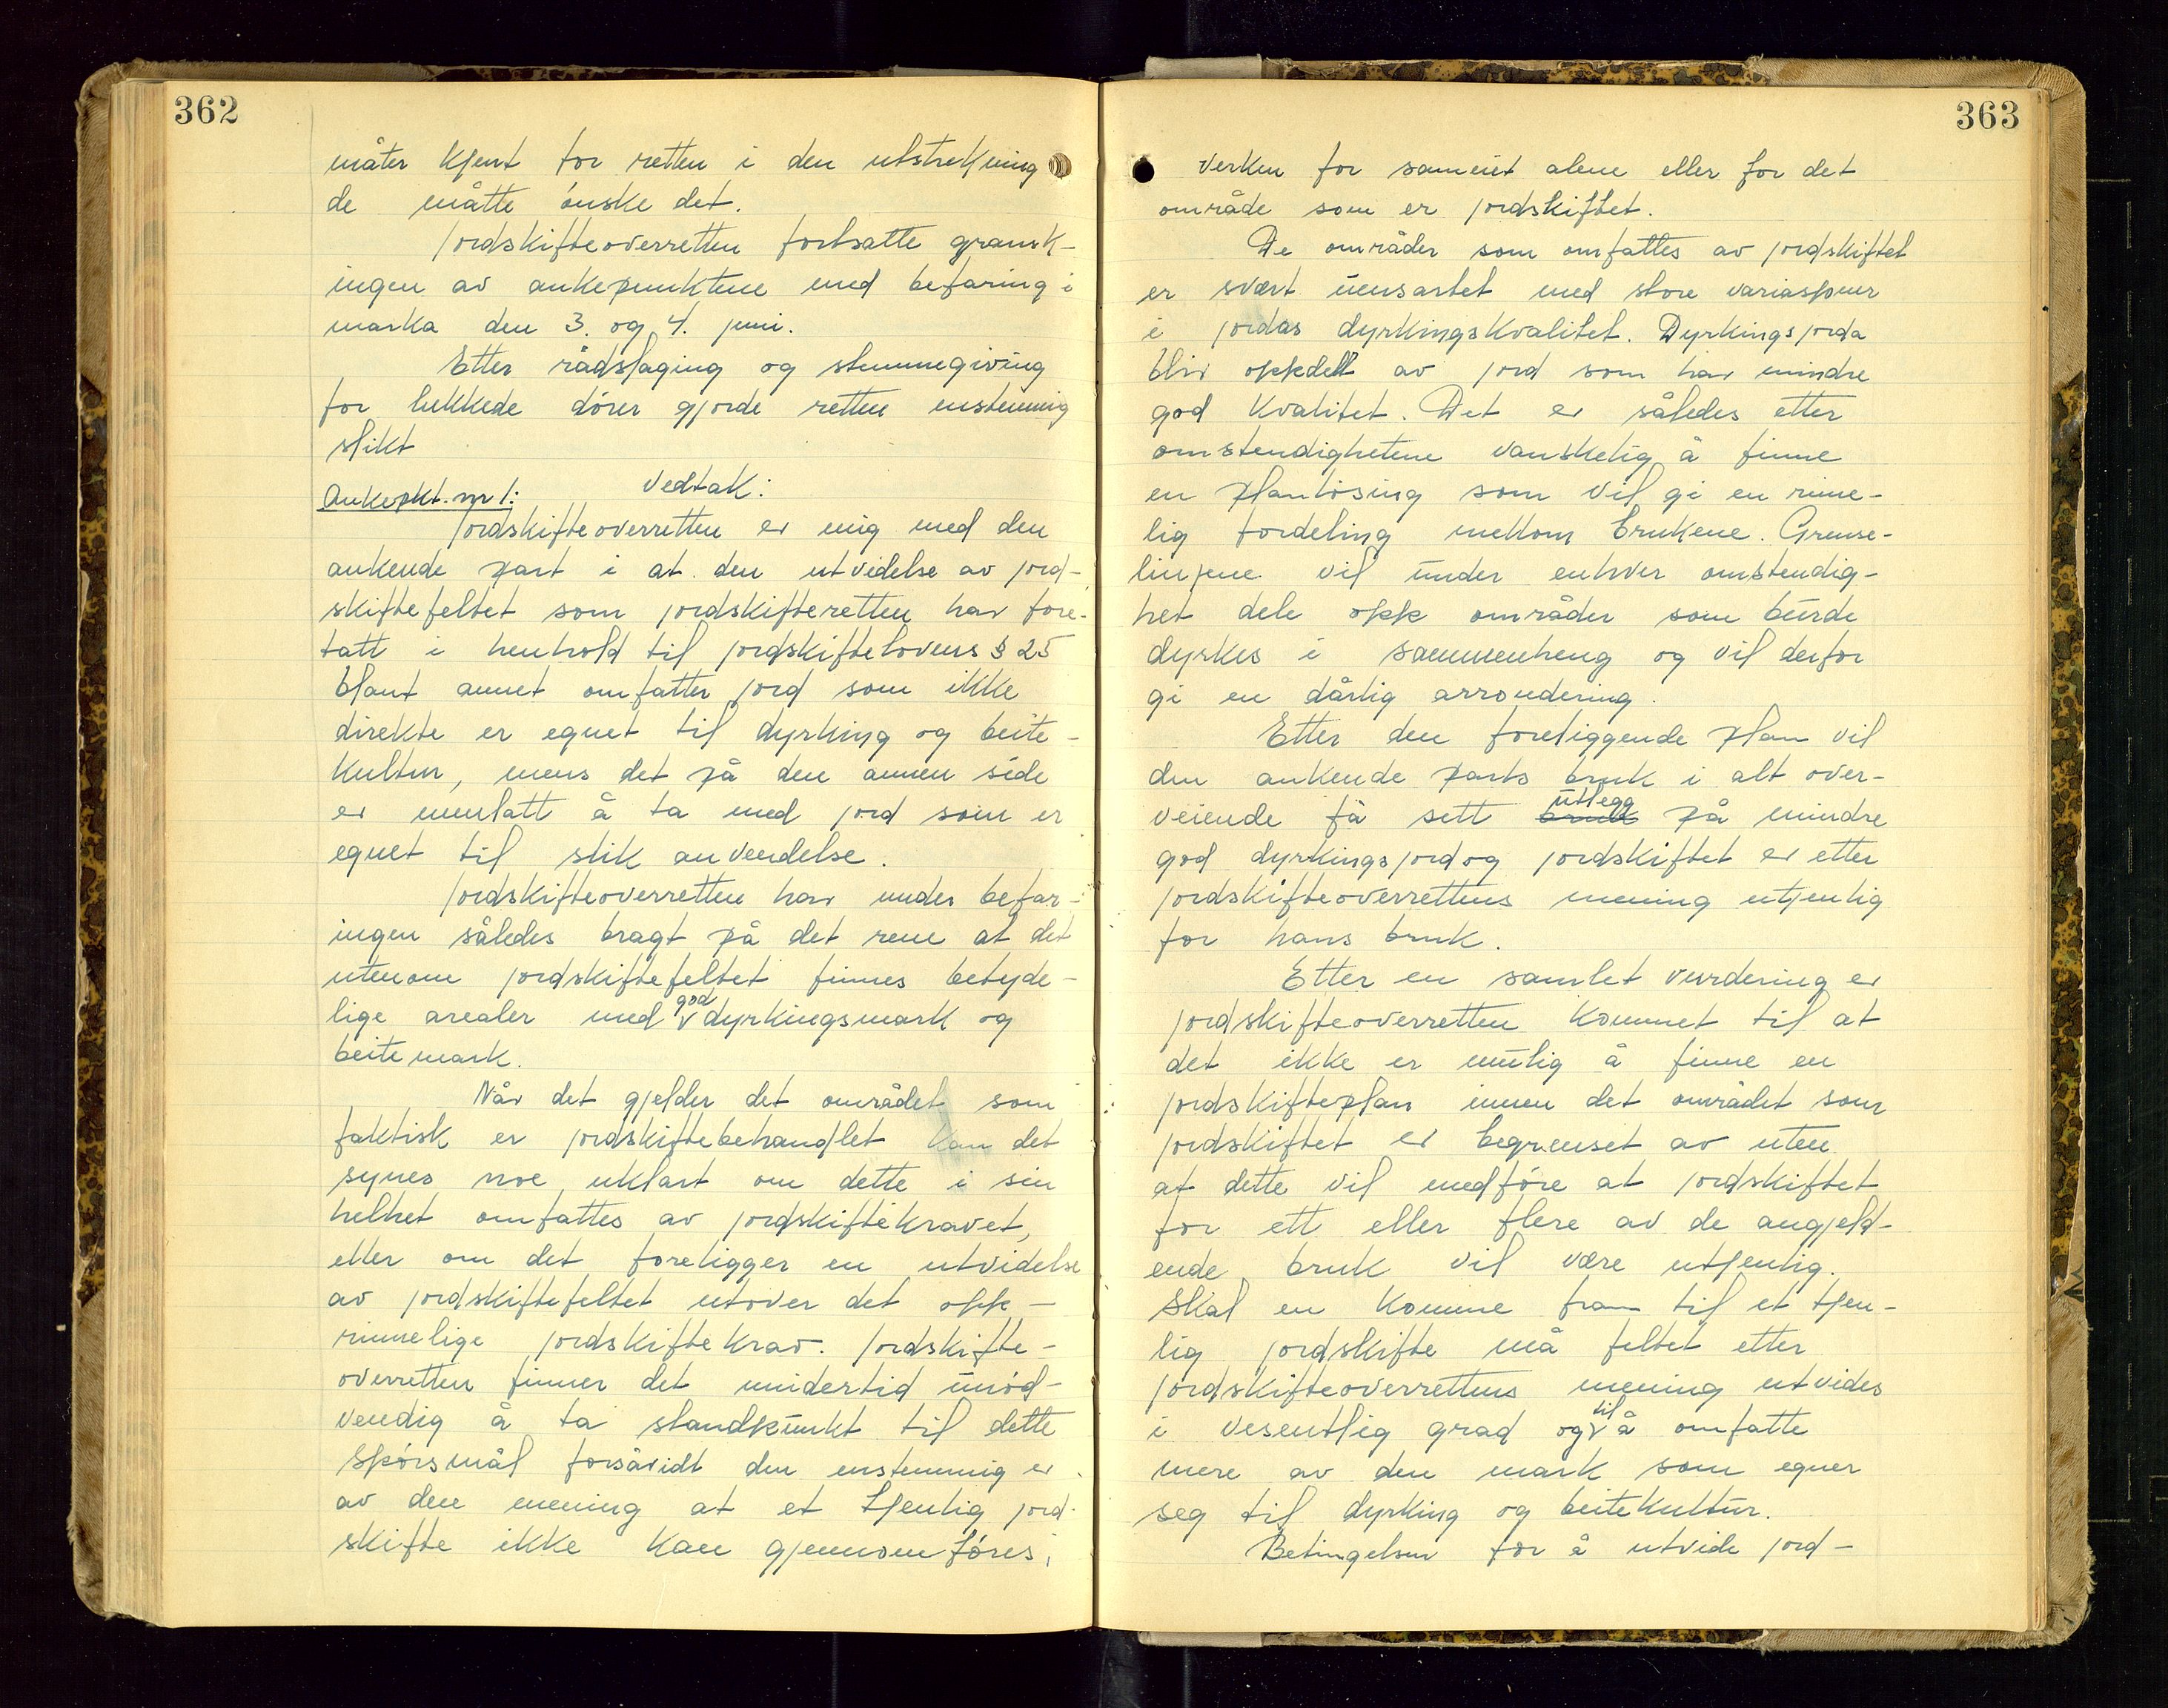 362
måter kjent for retten i den utstrekning
de måtte ønske det.
Jordskifteoverretten fortsatte gransk-
ingen av ankepunktene med befaring i
marka den 3. og 4. juni.
Etter rådslaging og stemmegiving
for lukkede dører gjorde retten enstemmig
slikt
Vedtak:
Ankepkt. nr 1:
Jordskifteoverretten er enig med den
ankende part i at den utvidelse av jord-
skiftefeltet som jordskifteretten har fore-
tatt i henhold til jordskiftelovens § 25
blant annet omfatter jord som ikke
direkte er egnet til dyrking og beite-
kultur, mens det på den annen side
er unnlatt å ta med jord som er
egnet til slik anvendelse.
Jordskifteoverretten har under befar-
ingen således bragt på det rene at det
utenom jordskiftefeltet finnes betyde-
lige arealer med god dyrkingsmark og
beitemark.
Når det gjelder det området som
faktisk er jordskiftebehandlet kan det
synes noe uklart om dette i sin
helhet omfattes av jordskiftekravet,
eller om det foreligger en utvidelse
av jordskiftefeltet utover det opp-
rinnelige jordskiftekrav. Jordskifte-
overretten finner det imidlertid unød-
vendig å ta standpunkt til dette
spørsmål forsåvidt den enstemmig er
av den mening at et tjenlig jord-
skifte ikke kan gjennomføres,
363
verken for sameiet alene eller for det
område som er jordskiftet.
De områder som omfattes av jordskiftet
er svært uensartet med store variasjoner
i jordas dyrkingskvalitet. Dyrkingsjorda
blir oppdelt av jord som har mindre
god kvalitet. Det er således etter
omstendighetene vanskelig å finne
en planløsing som vil gi en rime-
lig fordeling mellom brukene. Grense-
linjene vil under enhver omstendig-
het dele opp områder som burde
dyrkes i sammenheng og vil derfor
gi en dårlig arrondering.
Etter den foreliggende plan vil
den ankende parts bruk i alt over-
veiende få sett bruk utlegg på mindre
god dyrkingsjord og jordskiftet er etter
jordskifteoverrettens mening utjenlig
for hans bruk.
Etter en samlet vurdering er
jordskifteoverretten kommet til at
det ikke er mulig å finne en
jordskifteplan innen det området som
jordskiftet er begrenset av uten
at dette vil medføre at jordskiftet
for ett eller flere av de angjeld-
ende bruk vil være utjenlig.
Skal en komme fram til et tjen-
lig jordskifte må feltet etter
jordskifteoverrettens mening utvides
i vesentlig grad og til å omfatte
mere av den mark som egner
seg til dyrking og beitekultur.
Betingelsen for å utvide jord-